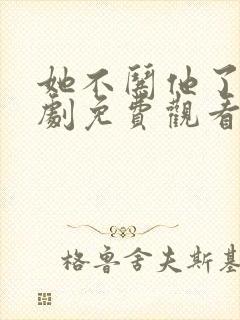 她不闹他了
劇免費觀看
格鲁舍夫斯基